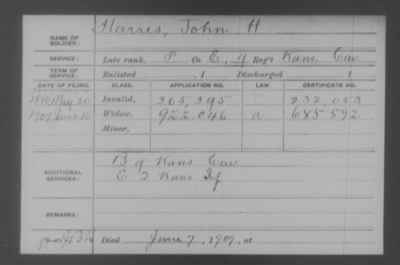 NAME OF SOLDIER: Harris, John H
SERVICE: Late rank, P Co. E, 9 Reg't Kans. Cav.
TERM OF SERVICE: Enlisted , 1 Discharged , 1
DATE OF FILING. CLASS. APPLICATION NO. LAW. CERTIFICATE NO.
May 20 Invalid, 365,395 232,053
1909 June 16 Widow, 922,046 a 685,592
Minor,
ADDITIONAL SERVICES: B 9 Kans. Cav
E 2 Kans Inf
REMARKS:
Died June 7, 1909, at